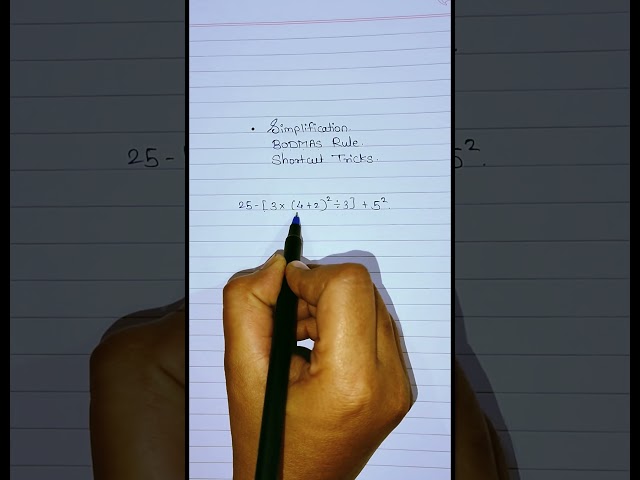 • Simplification.
BODMAS Rule.
Shortcut Tricks.
25-[3×(4+2)²÷3] + 5².
25-
5².